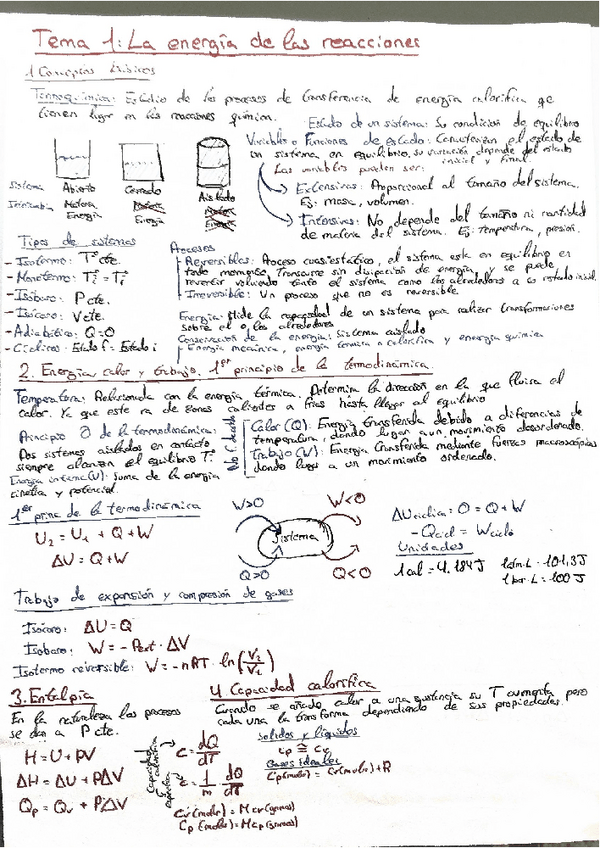 Tema 1: La energía de las reacciones
1. Conceptos básicos
Termoquímica: Estudio de los procesos de transferencia de energía calorífica que
tienen lugar en las reacciones química.
Estado de un sistema: Su condición de equilibrio
Variables o Funciones de estado: Caracterizan el estado de
un sistema en equilibrio, su variación depende del estado
inicial y final.
Las variables pueden ser:
Extensivas: Proporcional al tamaño del sistema.
Ej: masa, volumen.
Intensivas: No depende del tamaño ni cantidad
de materia del sistema. Ej: temperatura, presión.
Sistema Abierto Cerrado Aislado
Intercambia Materia Energía Materia Energía Materia Energía
Tipos de sistemas
- Isotermo: Tª cte.
- Monotermo: Tªi = Tªf
- Isóbaro: P cte.
- Isócoro: V cte.
- Adiabático: Q=0
- Cíclicos: Estado f = Estado i
Procesos
- Reversibles: Proceso cuasiestático, el sistema esta en equilibrio en
todo momento. Transcurre sin disipación de energía y se puede
revertir volviendo tanto el sistema como los alrededores a su estado inicial.
- Irreversible: Un proceso que no es reversible.
Energía: Mide la capacidad de un sistema para realizar transformaciones
sobre el o los alrededores
Conservación de la energía: Sistema aislado
Energía mecánica, energía térmica o calorífica y energía química
2. Energía, calor y trabajo. 1er principio de la termodinámica.
Temperatura: Relacionada con la energía térmica. Determina la dirección en la que fluirá el
calor. Ya que este va de zonas calientes a frías hasta llegar al equilibrio
Principio 0 de la termodinámica:
Dos sistemas aislados en contacto
siempre alcanzan el equilibrio Tª.
Energía interna (U): Suma de la energía
cinética y potencial.
No f. de estado
Calor (Q): Energía transferida debido a diferencias de
temperatura, dando lugar a un movimiento desordenado.
Trabajo (W): Energía transferida mediante fuerzas macroscópicas
dando lugar a un movimiento ordenado.
1er princ. de la termodinámica
U2 = U1 + Q + W
ΔU = Q + W
W>0 W<0
Sistema
Q>0 Q<0
ΔUciclica: 0 = Q + W
- Qcicl = Wciclo
Unidades
1 cal = 4.184 J 1 atm·L = 101,3 J
1 bar·L = 100 J
Trabajo de expansión y compresión de gases
Isócoro: ΔU = Q
Isobaro: W = - Pext · ΔV
Isotermo reversible: W = -nRT · ln(V2/V1)
3. Entalpía
En la naturaleza los procesos
se dan a P cte.
H = U + PV
ΔH = ΔU + PΔV
Qp = Qv + PΔV
4. Capacidad calorífica
Cuando se añade calor a una sustancia su T aumenta pero
cada una la transforma dependiendo de sus propiedades.
Capacidad calorífica
C = dQ/dT
específica
c = 1/m · dQ/dT
Cv(molar) = M cv(gramos)
Cp(molar) = M cp(gramos)
Solidos y líquidos
cp ≅ cv
Gases ideales
Cp(molar) = Cv(molar) + R